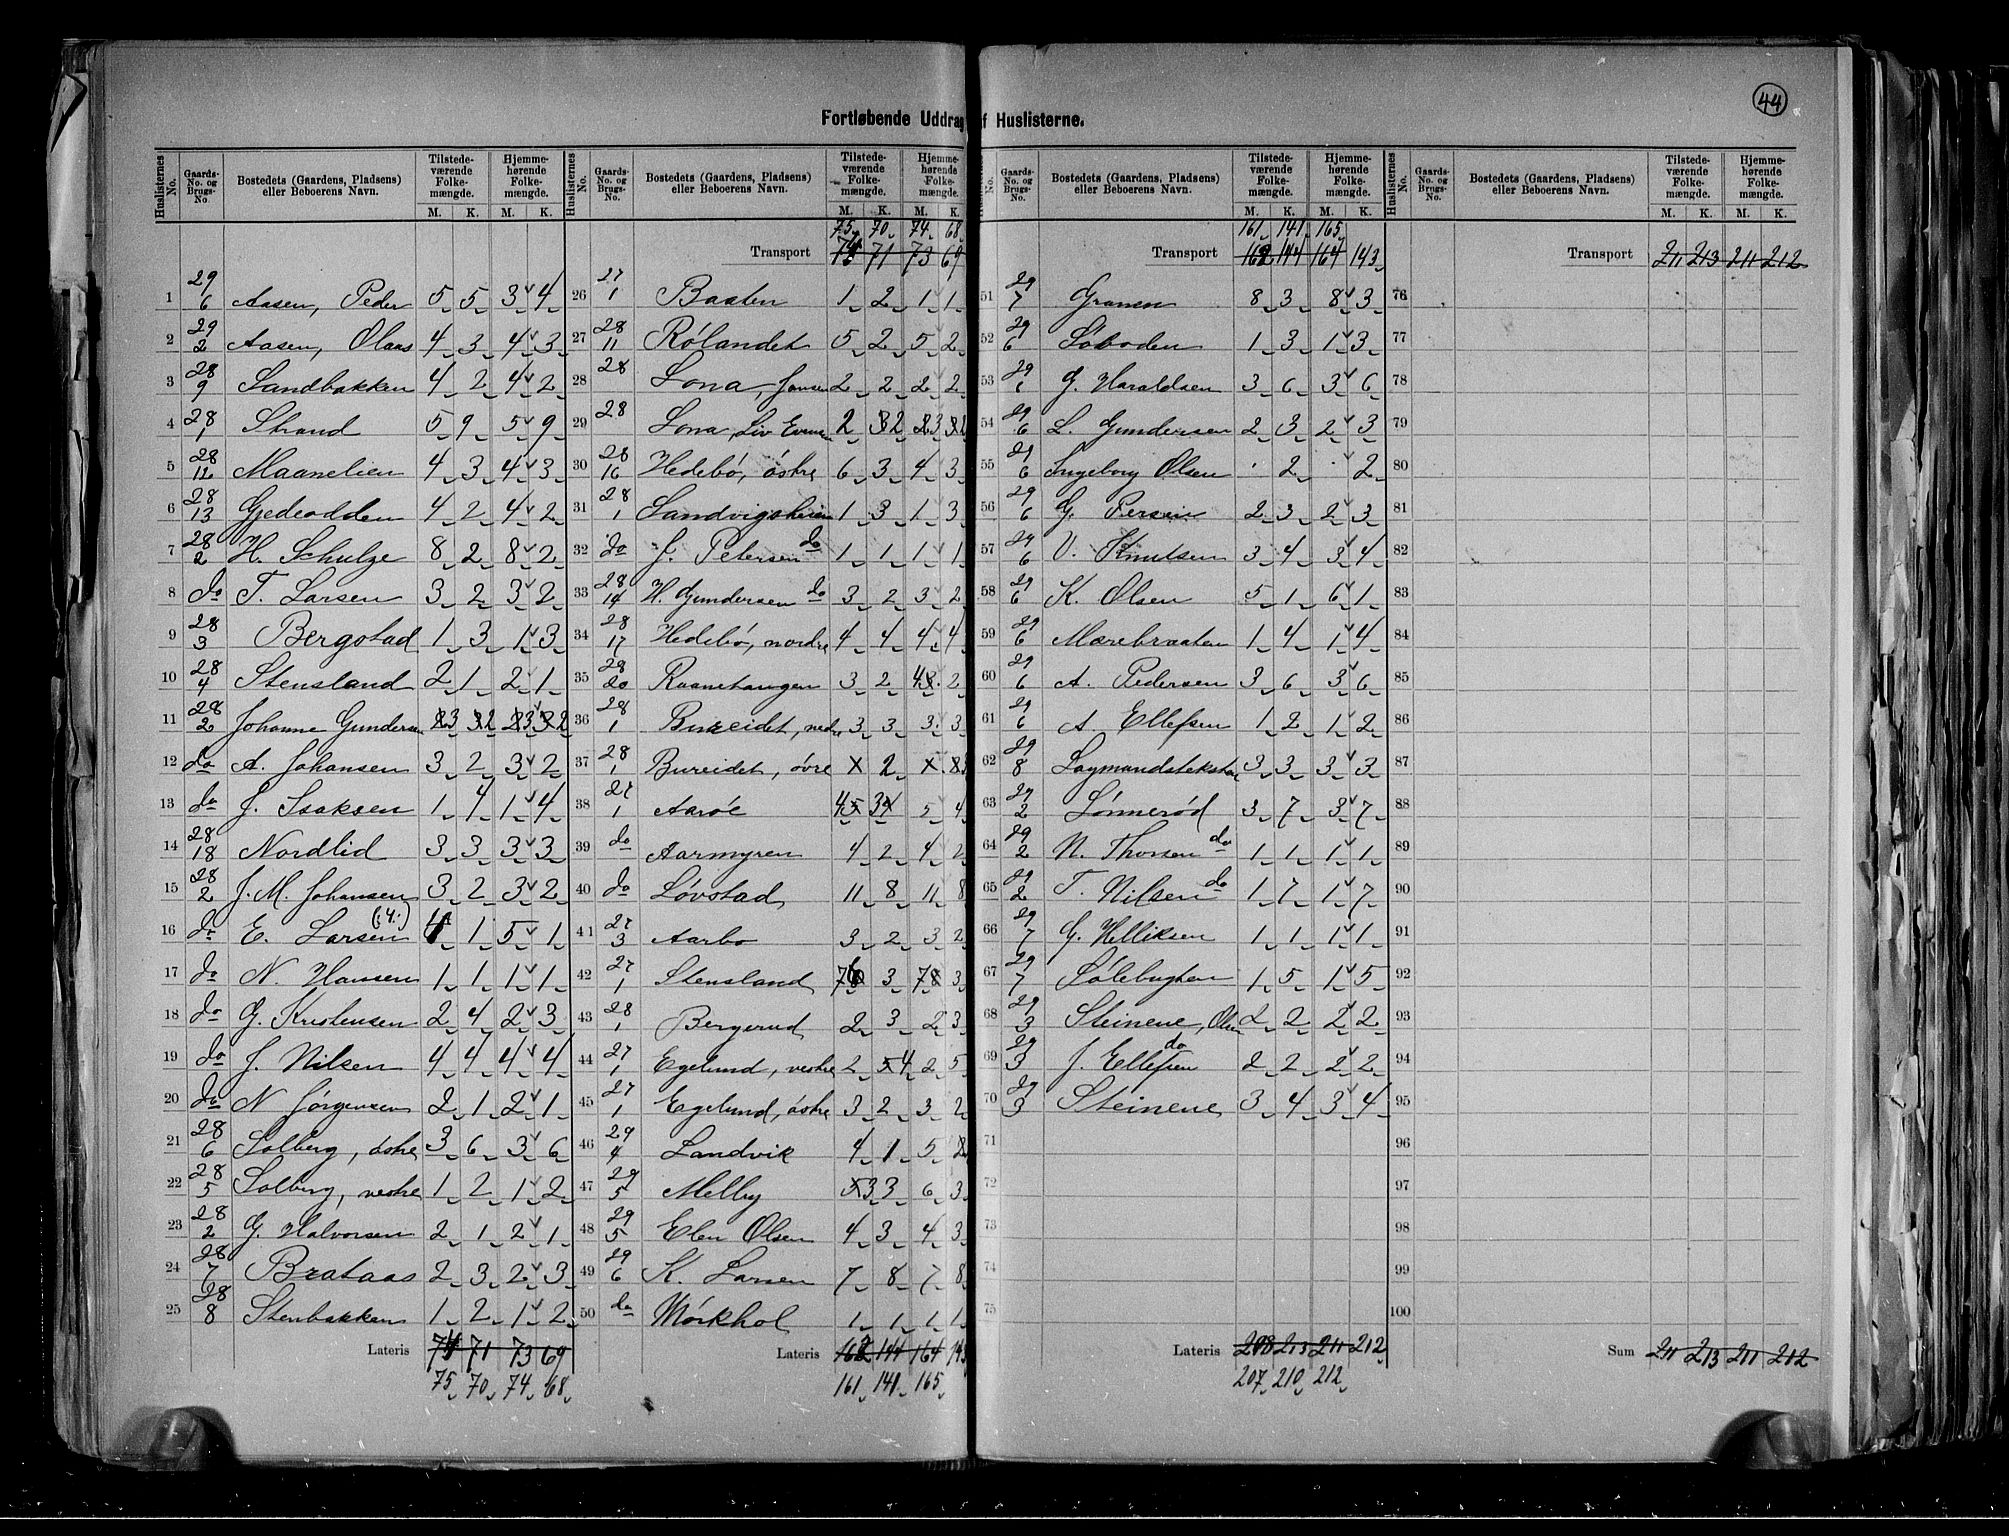 44
Fortløbende Uddrag af Huslisterne.
Huslisternes No. | Gaards-No. og Brugs-No. | Bostedets (Gaardens, Pladsens) eller Beboerens Navn. | Tilstedeværende Folkemængde. M. K. | Hjemmehørende Folkemængde. M. K.
1 29/6 Aasen, Peder 5 5 3 4
2 29/2 Aasen, Olaus 4 3 4 3
3 28/9 Sandbakken 4 2 4 2
4 28/1 Strand 5 9 5 9
5 28/12 Maanelien 4 3 4 3
6 28/13 Gjedeodden 4 2 4 2
7 28/2 H. Schulze 8 2 8 2
8 do T. Larsen 3 2 3 2
9 28/3 Bergstad 1 3 1 3
10 28/4 Stensland 2 1 2 1
11 28/2 Johanne Gundersen 3 2 3 2
12 do A. Johansen 3 2 3 2
13 do J. Isaksen 1 4 1 4
14 28/18 Nordlid 3 3 3 3
15 28/2 J. M. Johansen 3 2 3 2
16 do E. Larsen (:4:) 4 1 5 1
17 do N. Hansen 1 1 1 1
18 do G. Kristensen 2 4 2 3
19 do J. Nilsen 4 4 4 4
20 do N Jørgensen 2 1 2 1
21 28/6 Solberg, østre 3 6 3 6
22 28/5 Solberg, vestre 1 2 1 2
23 28/2 G. Halvorsen 2 1 2 1
24 28/7 Brataas 2 3 2 3
25 28/8 Stenbakken 1 2 1 2
Lateris 74 71 73 69
75 70 74 68
75 70 74 68
Transport 74 71 73 69
26 27/1 Baaten 1 2 1 1
27 28/11 Rølandet 5 2 5 2
28 28 Lona, Jonsen 2 2 2 2
29 28 Lona, Liv Evensen 2 2 3 2
30 28/16 Hedebø, østre 6 3 4 3
31 28/1 Sandvigsheien 1 3 1 3
32 do J. Petersen do 1 1 1 1
33 28/14 H. Gundersen do 3 2 3 2
34 28/17 Hedebø, nordre 4 4 4 4
35 28/do Raanehaugen 3 2 4 2
36 28/1 Bureidet, nedre 3 3 3 3
37 28/1 Bureidet, øvre x 2 x 3
38 27/1 Aarøe 4 3 5 4
39 do Aarmyren 4 2 4 2
40 do Løvstad 11 8 11 8
41 27/3 Aarbo 3 2 3 2
42 27/1 Stensland 7 3 7 3
43 28/1 Bergerud 2 3 2 3
44 27/1 Egelund, vestre 2 4 2 5
45 27/1 Egelund, østre 3 2 3 2
46 29/4 Landvik 4 1 5
47 29/5 Melby 3 3 6 3
48 29/5 Elen Olsen 4 3 4 3
49 29/6 K. Larsen 7 8 7 8
50 do Mørkhol 1 1 1 1
Lateris 162 144 164 143
161 141 165
161 141 165
Transport 162 144 164 143
51 29/7 Granen 8 3 8 3
52 29/6 Søboden 1 3 1 3
53 29/6 G. Haraldsen 3 6 3 6
54 29/6 L. Gundersen 2 3 2 3
55 29/6 Ingeborg Olsen · 2 · 2
56 29/6 G. Persen 2 3 2 3
57 29/6 O. Knutsen 3 4 3 4
58 29/6 K. Olsen 5 1 6 1
59 29/6 Mærebraaten 1 4 1 4
60 29/6 A. Pedersen 3 6 3 6
61 29/6 A Ellefsen 1 2 1 2
62 29/8 3 3 3 3
63 29/2 Lønnerød 3 7 3 7
64 29/2 N. Thorsen do 1 1 1 1
65 29/2 T. Nilsen do 1 7 1 7
66 29/7 G. Helliksen 1 1 1 1
67 29/7 1 5 1 5
68 29/3 Steinene, Olsen 2 2 2 2
69 29/3 J. Ellefsen do 2 2 2 2
70 29/3 Steinene 3 4 3 4
71
72
73
74
75
Lateris 208 213 211 212
207 210 212
Transport 211 213 211 212
76
77
78
79
80
81
82
83
84
85
86
87
88
89
90
91
92
93
94
95
96
97
98
99
100
Sum 211 213 211 212